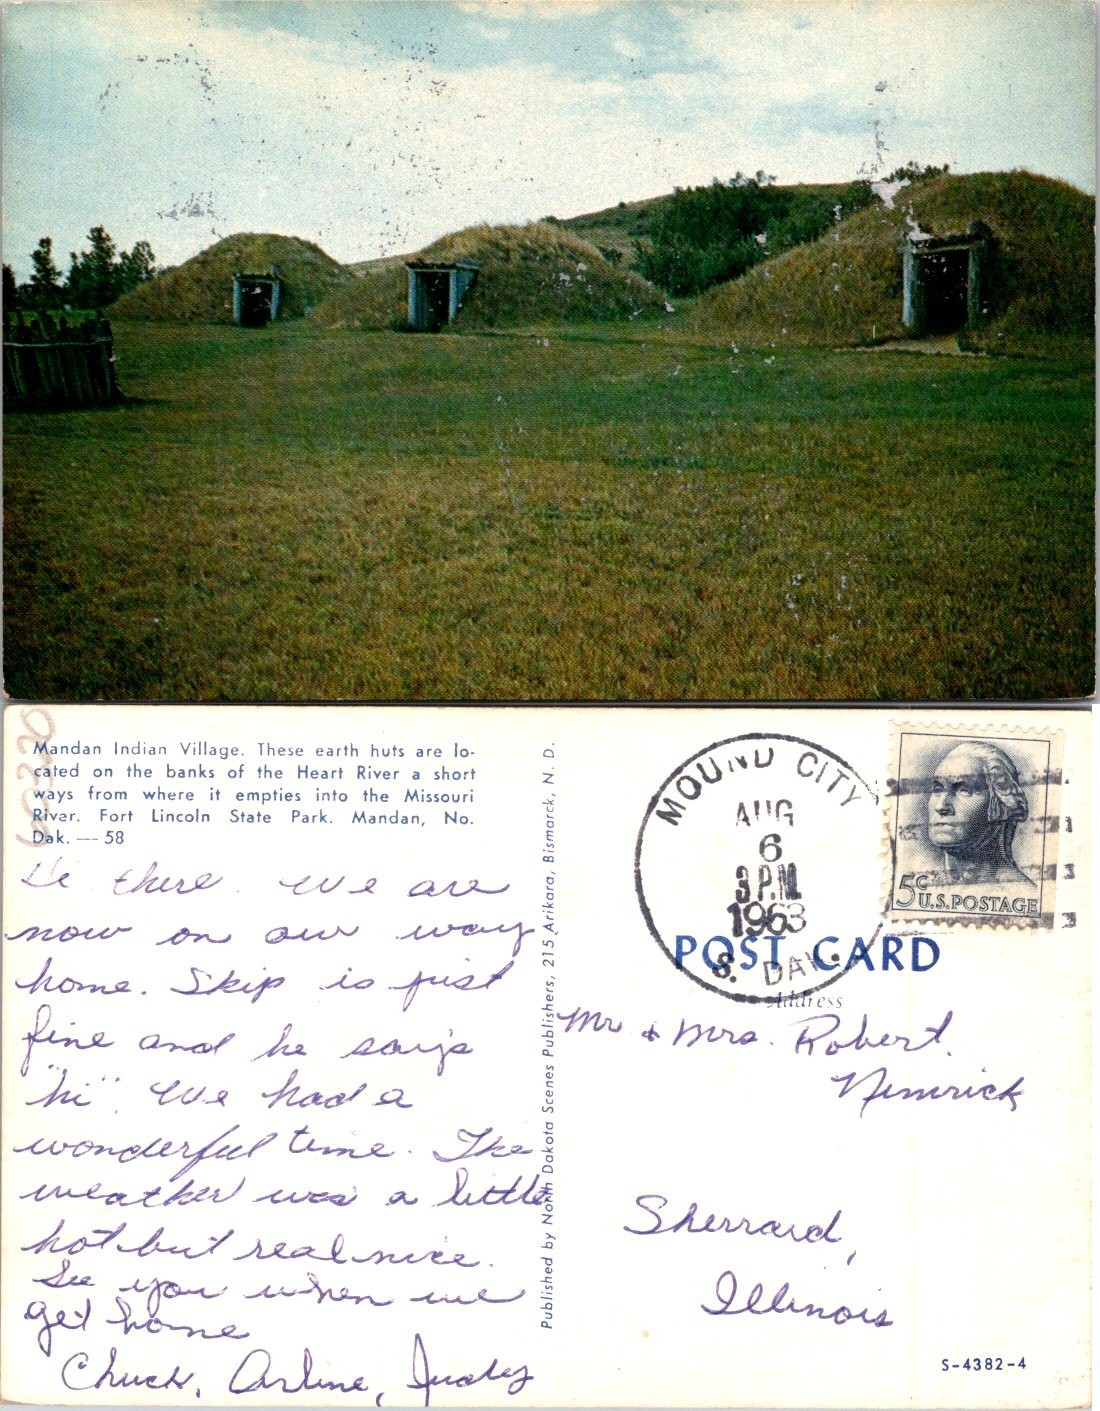 Mandan Indian Village. These earth huts are lo-
cated on the banks of the Heart River a short
ways from where it empties into the Missouri
River. Fort Lincoln State Park. Mandan, No.
Dak. — 58
Hi there. We are
now on our way
home. Skip is just
fine and he says
"hi". We had a
wonderful time. The
weather was a little
hot but real nice.
See you when we
get home
Chuck, Arline, Judy
Published by North Dakota Scenes Publishers, 215 Arikara, Bismarck, N. D.
MOUND CITY
AUG
6
3 P.M.
1963
S. DAK.
5¢
U.S. POSTAGE
POST CARD
Address
Mr & Mrs. Robert
Nimrick
Sherrard,
Illinois
S-4382-4